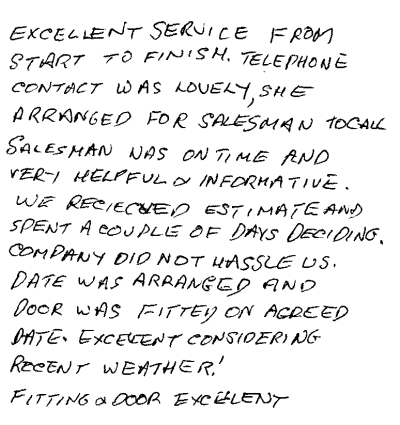 EXCELLENT SERVICE FROM
START TO FINISH. TELEPHONE
CONTACT WAS LOVELY, SHE
ARRANGED FOR SALESMAN TO CALL
SALESMAN WAS ON TIME AND
VERY HELPFUL & INFORMATIVE.
WE RECIECVED ESTIMATE AND
SPENT A COUPLE OF DAYS DECIDING.
COMPANY DID NOT HASSLE US.
DATE WAS ARRANGED AND
DOOR WAS FITTED ON AGREED
DATE. EXCELLENT CONSIDERING
RECENT WEATHER!
FITTING & DOOR EXCELLENT